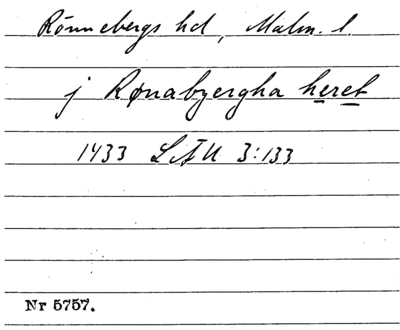 Rönnebergs hd, Malm. l.
j Rønabyergha heret
1433 LÄU 3:133
Nr 5757.